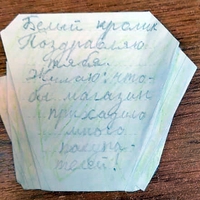 Белый кролик
Поздравляю
тебя.
Желаю: что-
бы магазин
приносил
много
покупа-
телей!